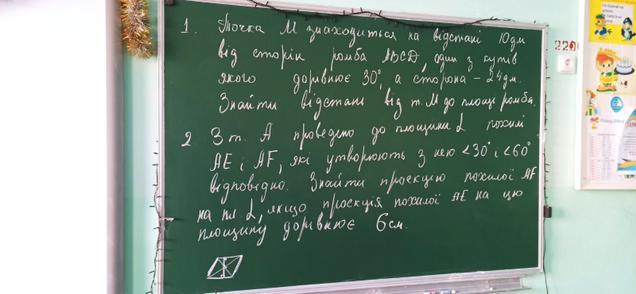 1. Точка М знаходиться на відстані 10дм
від сторін ромба ABCD, один з кутів
якого дорівнює 30°, а сторона - 24дм.
Знайти відстані від т. М до площ ромба.
2 З т. А проведено до площини α похилі
АЕ і AF, які утворюють з нею <30° і <60°
відповідно. Знайти проєкцію похилої AF
на пл. α, якщо проєкція похилої АЕ на цю
площину дорівнює 6см.
220